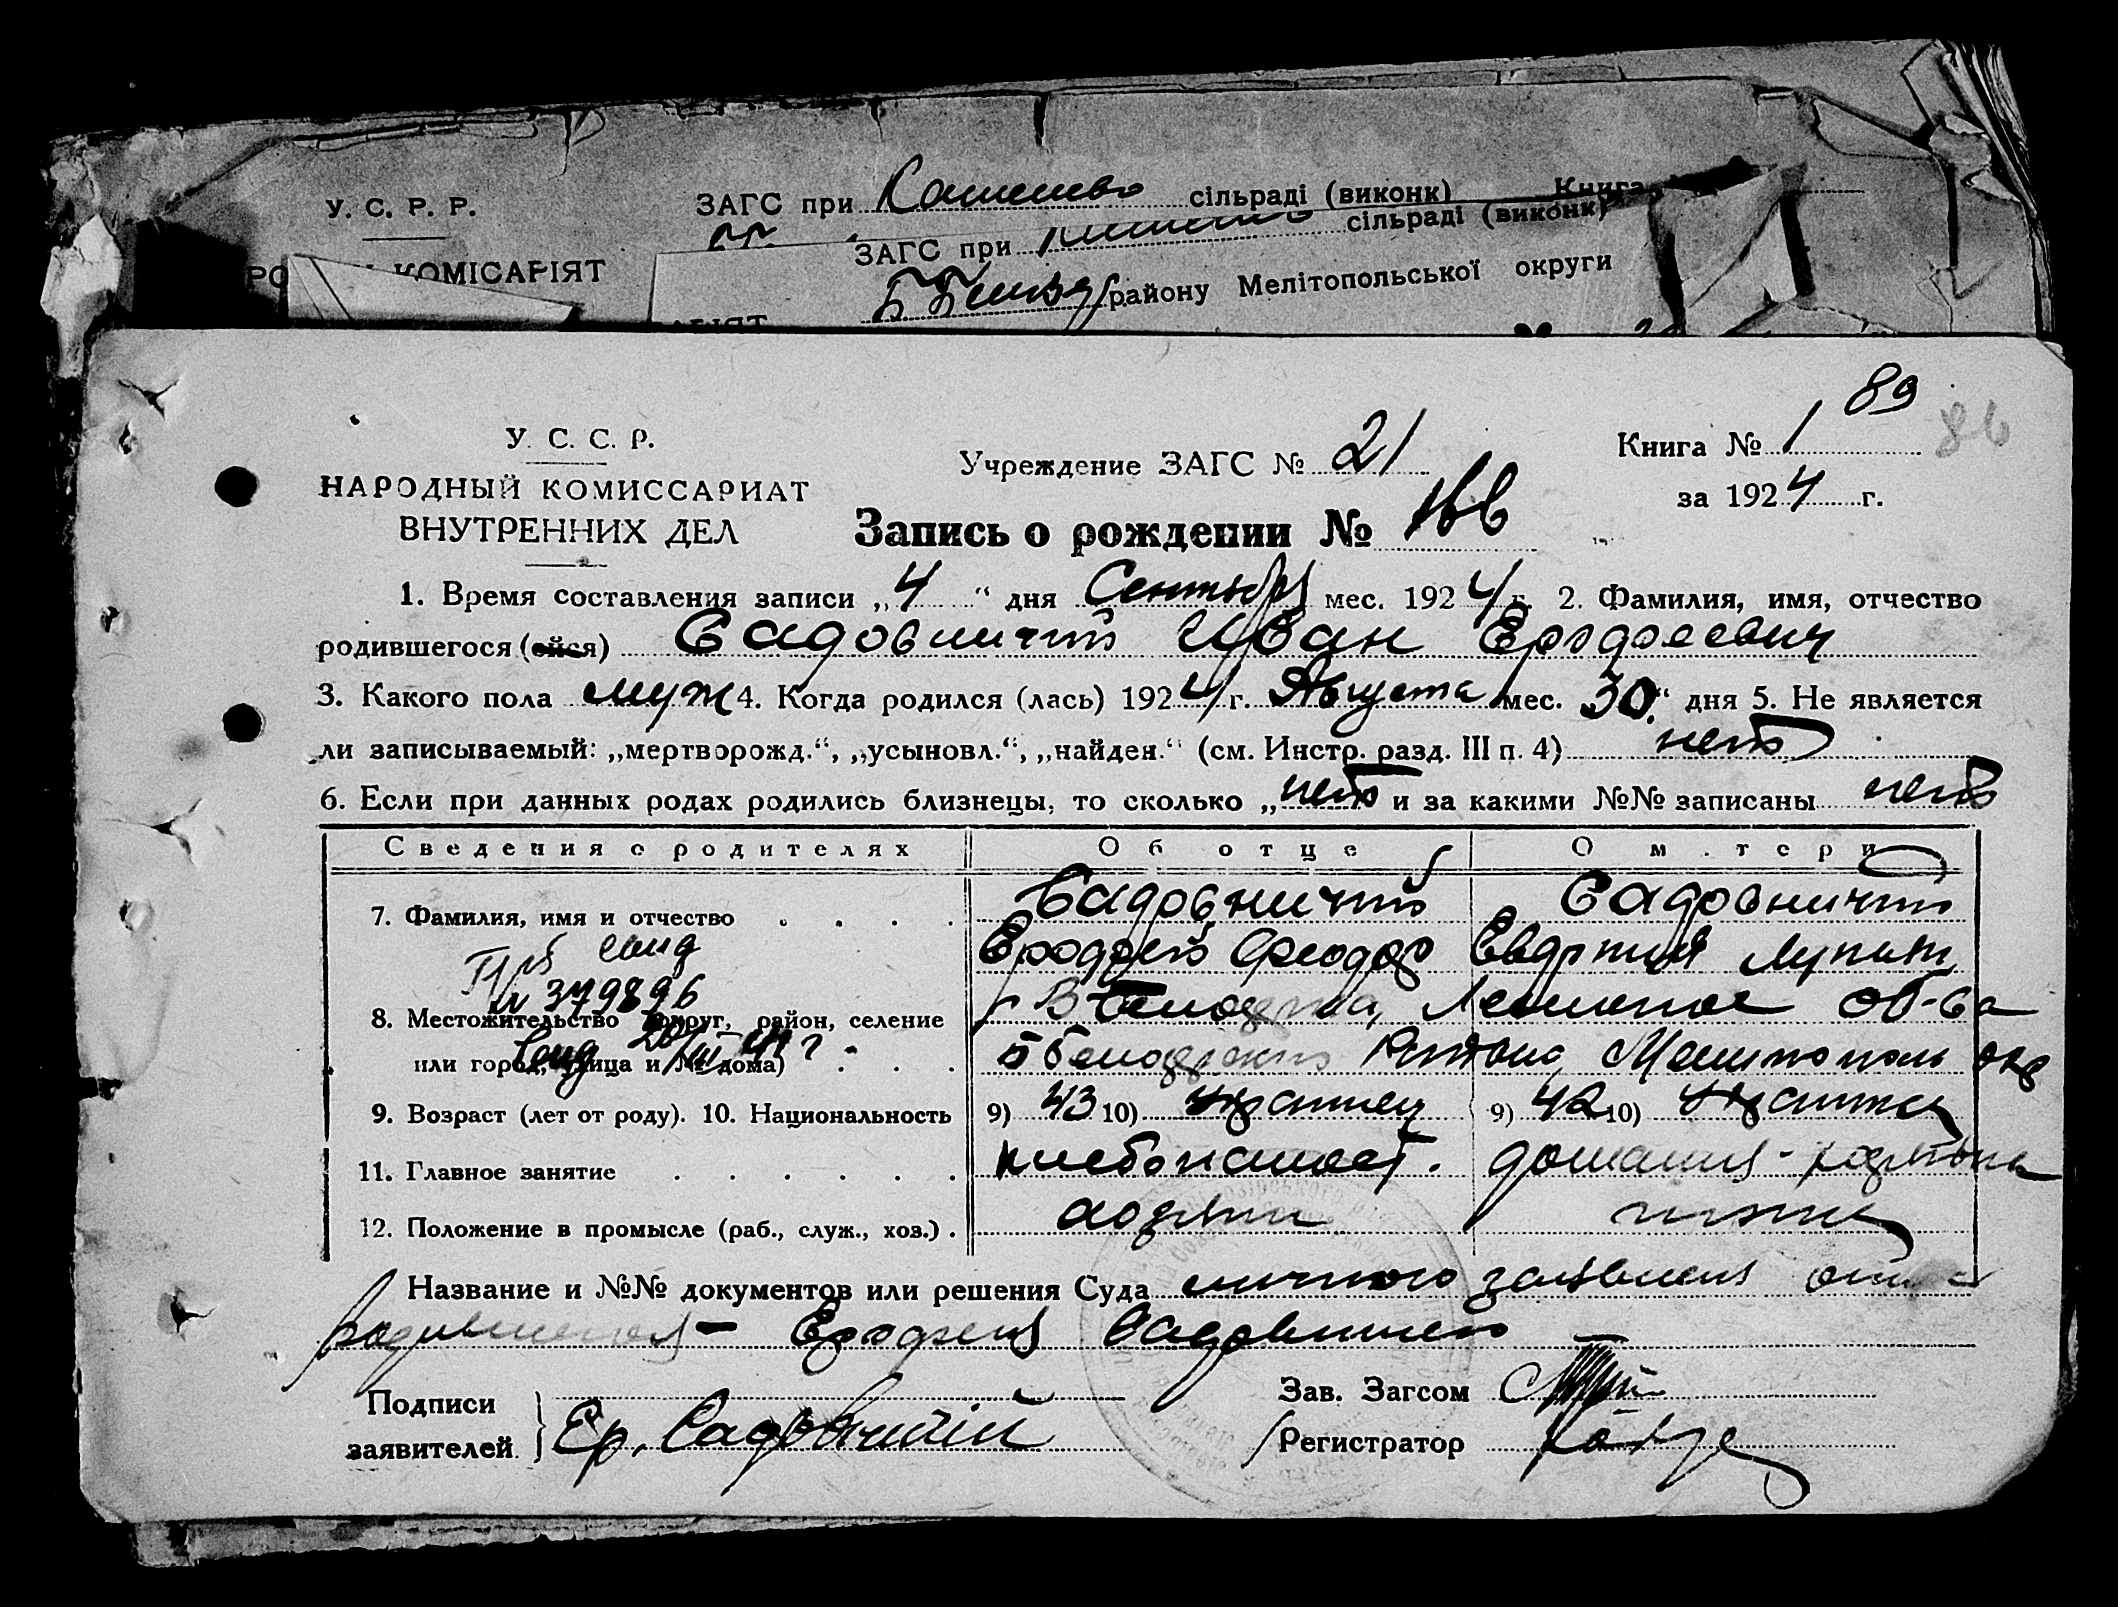 У. С. Р. Р.
ЗАГС при сільраді (виконк) Книга
КОМІСАРІЯТ
ЗАГС при сільраді (виконк)
району Мелітопольської округи
89
86
У. С. С. Р.
НАРОДНЫЙ КОМИССАРИАТ
ВНУТРЕННИХ ДЕЛ
Учреждение ЗАГС № 21
Книга № 1
за 1924 г.
Запись о рождении № 166
1. Время составления записи „4“ дня Сентября мес. 1924 г. 2. Фамилия, имя, отчество
родившегося (ейся) Садовничий Иван Ерофеевич
3. Какого пола муж 4. Когда родился (лась) 1924 г. Августа мес. 30“ дня 5. Не является
ли записываемый: „мертворожд.“, „усыновл.“, „найден.“ (см. Инстр. разд. III п. 4) нет
6. Если при данных родах родились близнецы, то сколько „нет и за какими №№ записаны нет
Сведения о родителях Об отце О матери
7. Фамилия, имя и отчество Садовничий Садовничий
Ерофей Феодор Евдокия
№ 379896
8. Местожительство округ, район, селение
или город, улица и № дома) Мелитополь окр
9. Возраст (лет от роду). 10. Национальность 9) 43 10) украинец 9) 42 10) украинка
11. Главное занятие хлебопашест. домашня
12. Положение в промысле (раб., служ., хоз.)
Название и №№ документов или решения Суда личного заявления отца
родившегося – Ерофея Садовничего
Подписи
заявителей Ер. Садовничий
Зав. Загсом
Регистратор